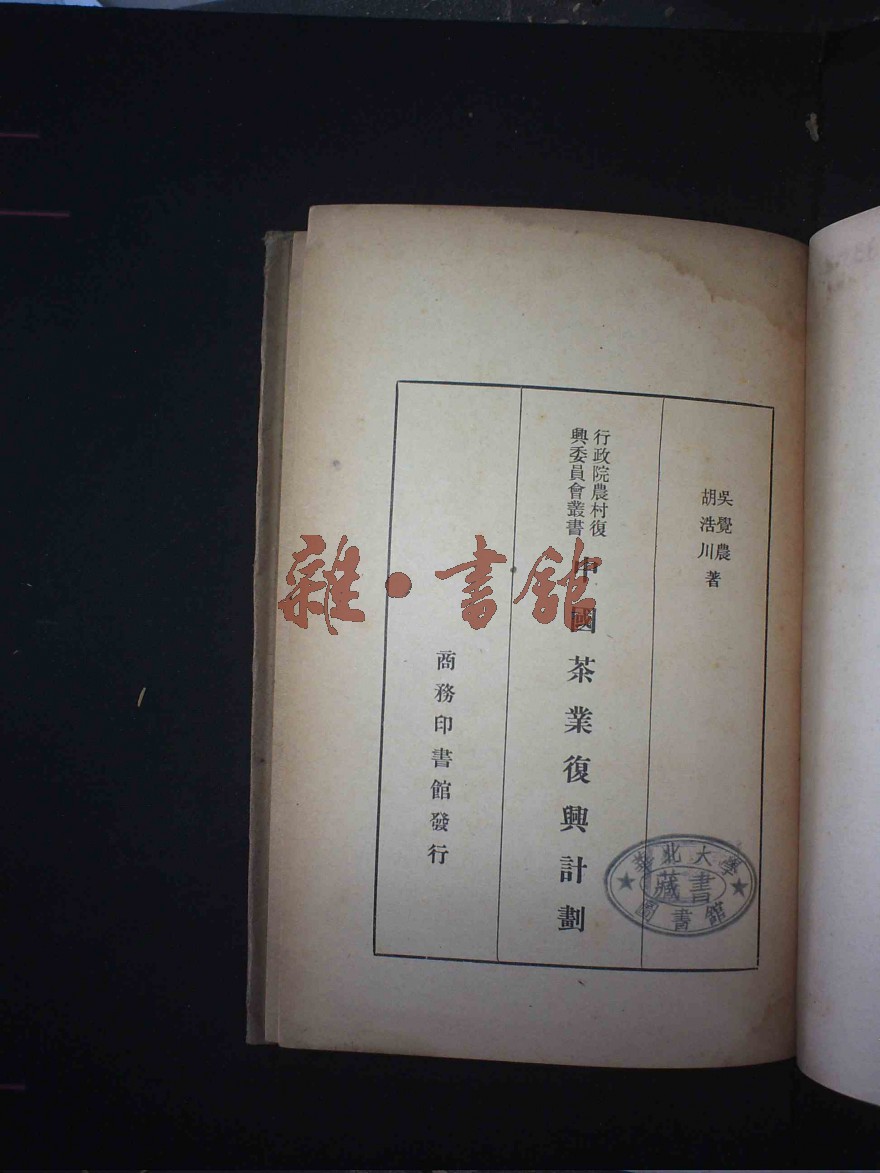 吳覺農
胡浩川 著
行政院農村復
興委員會叢書
中國茶業復興計劃
商務印書館發行
華北大學
藏書
圖書館
雜·書館